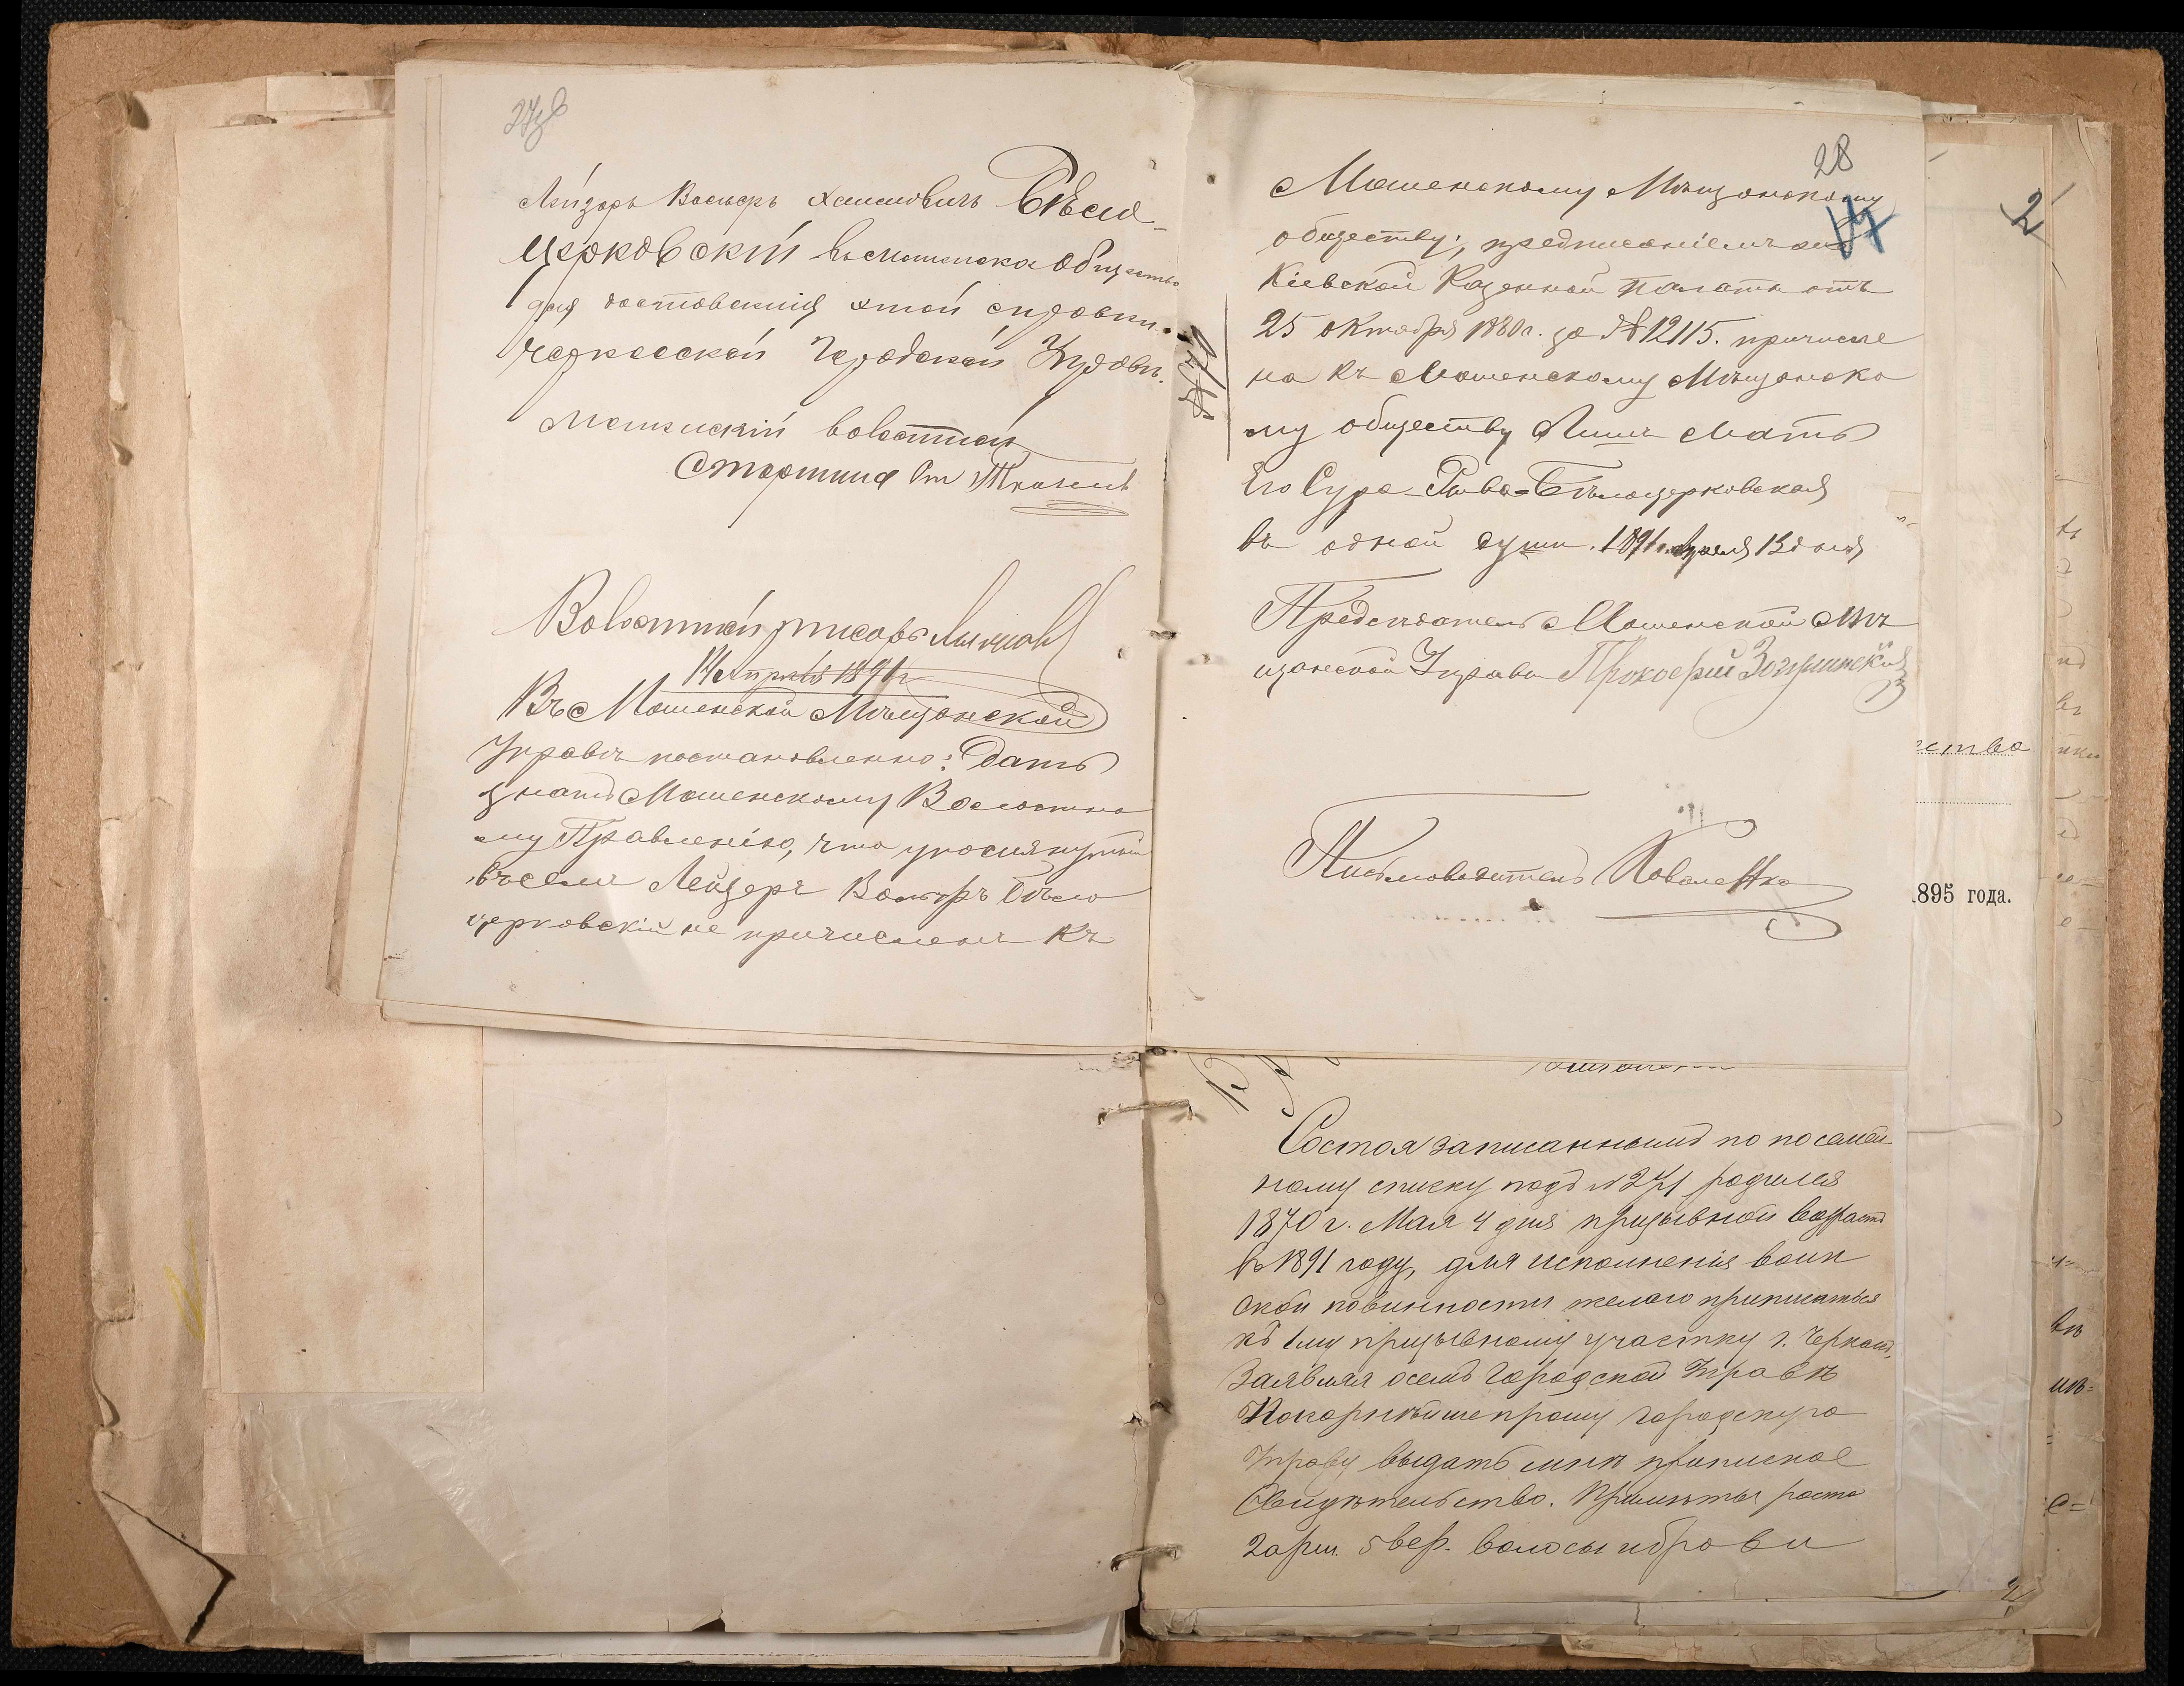 27об
Лейзоръ Вольфъ Хаимовичъ Бѣло-
церковскій въ Мошенское Общество
для доставленія этой справки
Черкасской Городской Управѣ.
Мошенскій волостной
Старшина
Волостной писарь
14 Апрѣля 1891 г
Въ Мошенской Мѣщанской
Управѣ постановленно: Дать
знать Мошенскому Волостно
му Правленію, что упомянутый
въ семъ Лейзеръ Вольфъ Бѣло
церковскій не причисленъ Къ
28
Мошенскому Мѣщанскому
17
обществу; предписаніемъ же
Кіевской Казенной Палаты отъ
25 октября 1880 г. за № 12115. причисле
на къ Мошенскому Мѣщанско
му обществу Лишь Мать
Его Сура-Рива-Бѣлоцерковская
въ одной душѣ. 1891 г. Апреля 13 дня
Предсѣдатель Мошенской Мѣ
щанской Управы Прокофій
Письмоводитель Коваленко
2
ества
.895 года.
Состоя записаннымъ по посемей-
ному списку подъ № 271 родился
1870 г. Мая 4 дня призывной возрастъ
въ 1891 году, для исполненія воин
ской повинности желаю приписаться
къ 1му призывному участку г. Черкасъ,
Заявляя о семъ Городской Управѣ
Покорнѣйше прошу городскую
Управу выдать мнѣ приписное
Свидѣтельство. Примѣты роста
2 арш. 5 вер. волосы и брови